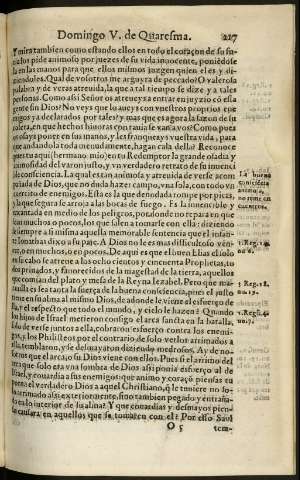 Domingo V. de Quaresma. 227
y mira tambien como estando ellos en todo el coraçon de su fu-
ria los pide animoso por juezes de su vida innocente, poniẽdose
la en las manos para que ellos mismos juzguen quien es, y di-
ziendoles. Qual de vosotros me arguyra de peccado? O valerosa
palabra y de veras atreuida, la que a tal tiempo se dize y a tales
personas. Como assi Señor os atreueys a entrar en juyzio cõ esta
gente sin Dios? No veys que lo aueys con vuestros propios ene
migos y a declarados por tales? y mas que es agora la sazon de su
colera, en que hechos
vsays poco poner en sus manos, y les franqueays vuestra vida, para
que andandola toda menudamente, hagan cala della? Reconoce
pues tu aqui (hermano mio) en tu Redemptor la grande osadia y
animosidad del varon justo, y vn verdadero retrato de su innocẽ
te consciencia. La qual estan animosa y atreuida de verse acom
pañada de Dios, que no duda hazer campo, vna sola, con todo vn
exercito de enemigos. Esta es la que denodada rompe por picas,
y la que segura se arroja a las bocas de fuego. Es la inuencible y
encantada en medio de los peligros, potando no repara en que
son muchos o pocos, los que salen a tomarse con ella: diziendo
le siempre a si misma aquella memorable sentencia que el infan-
te Ionathas dixo a su paje. A Dios no le es mas difficultoso vẽn-
cer, en muchos, o en pocos. De aqui es que el buen Elias el solo
de su cabo se atreue a los ochocientos y cincuenta Prophetas, to
dos priuados, y fauorecidos de la magestad de la tierra, aquellos
que comian del plato y mesa de la Reyna Iezabel. Pero que ma-
rauilla es les tanta la fuerça de la buena consciencia, pues el justo
tiene en su alma al mismo Dios, de adonde le viene el esfuerço de
ella, y el respecto que todo el mundo, y cielo le hazen? Quando
los hijos de Israel metieron consigo el arca sancta en la batalla,
do de verse juntos a ella, cobraron esfuerço contra los enemi-
gos, y los Philisteos por el contrario de solo verlos arrimados a
ella, temblaron, y se desmayaron diziendo medrosos. Ay de no-
sotros que el arca, o su Dios viene con ellos. Pues si el arrimo del
arca que solo era vna sombra de Dios assi ponia esfuerço al de
Israel, y couardia a sus enemigos: que animo y coraçõ piensas tu
pueda el verdadero Dios a aquel Christiano, q̃ le tuuiere no so-
lo arrimado assi exteriormente, sino tambien pegado y entraña-
do en lo interior de su alma? Y que couardias y desmayos pien-
sa causara en aquellos que se tomaren con el? Por esso Saul
O 5
tem-
La buena
consciẽcia
animosa,
no teme en
cuentros.
1. Reg. 14.
nu. 6.
3. Reg. 18.
nu. 19.
1. Reg. 4.
nu. 7.